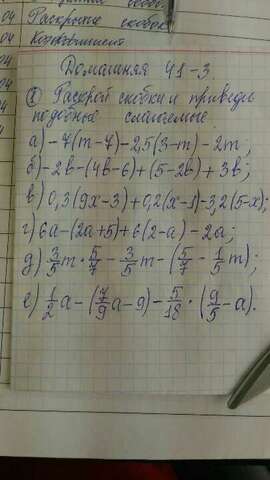 04
Раскрытие скобок
04
04
Домашняя 41-3.
① Раскрой скобки и приведи
подобные слагаемые
а) -7(m-7)-2,5(3-m)-2m;
б) -2b-(4b-6)+(5-2b)+3b;
в) 0,3(9x-3)+0,2(x-1)-3,2(5-x);
г) 6a-(2a+5)+6(2-a)-2a;
д) 3/5 m · 5/7 - 3/5 m - (5/7 - 1/5 m);
е) 1/2 a - (7/9 a - 9) - 5/18 · (9/5 - a).